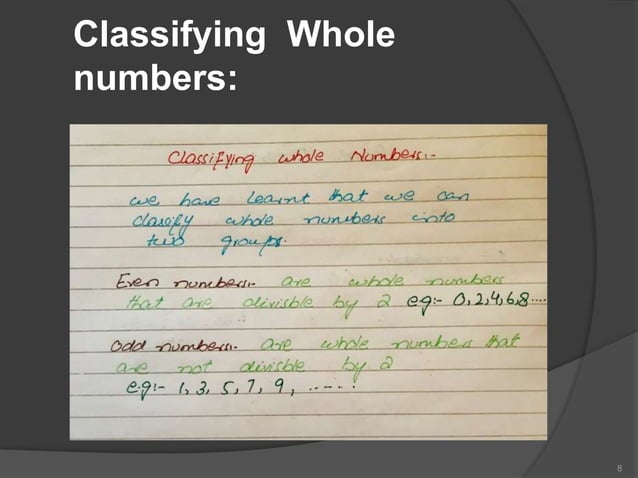 Classifying Whole
numbers:
Classifying whole Numbers:-
we have learnt that we can
classify whole numbers into
two groups.
Even numbers:- are whole numbers
that are divisible by 2 eg:- 0,2,4,6,8....
Odd numbers:- are whole numbers that
are not divisible by 2
e.g:- 1, 3, 5, 7, 9, .....
8